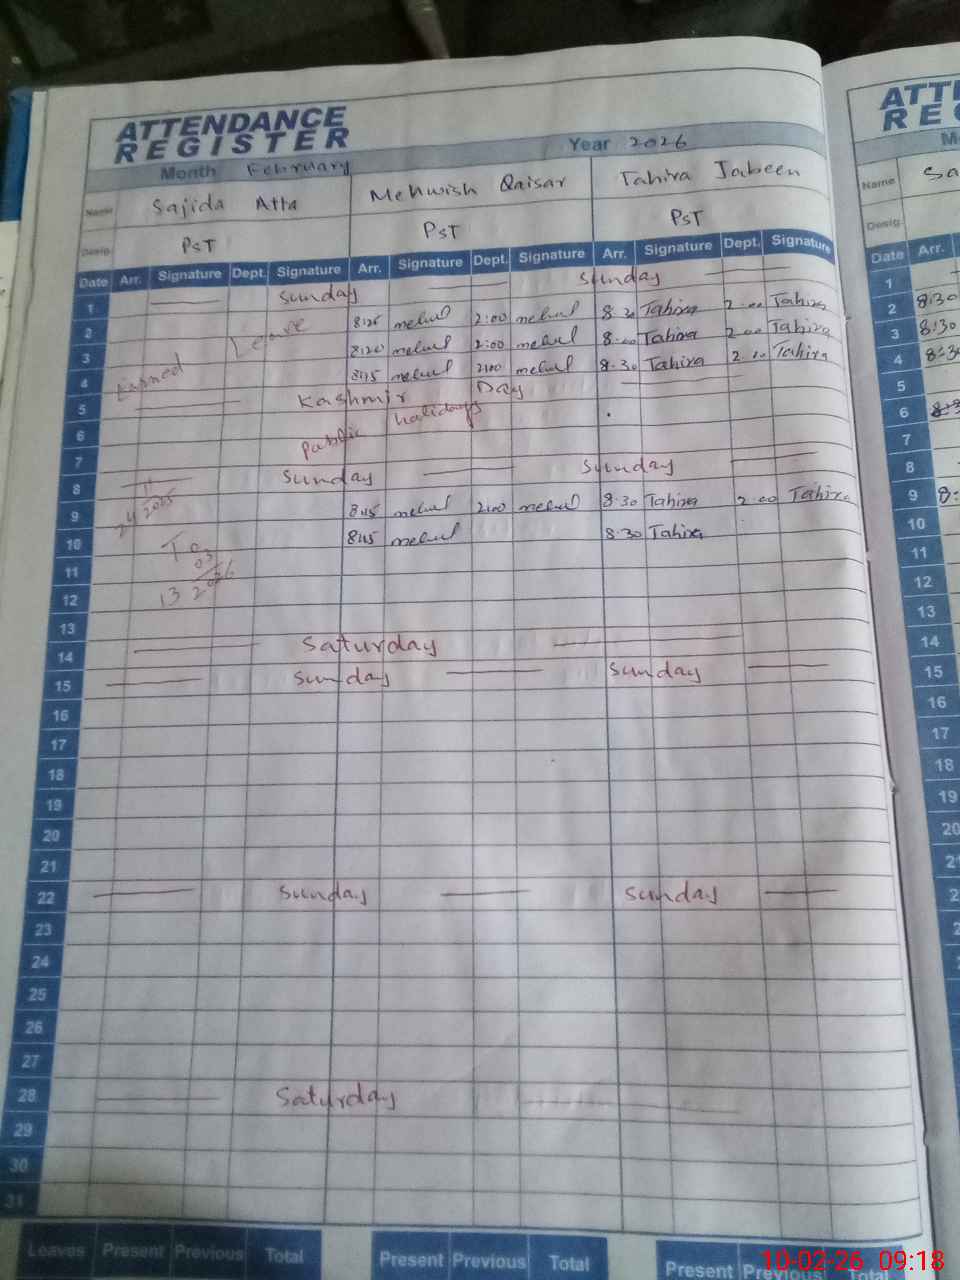 ATTENDANCE
REGISTER
Month February Year 2026
Name Sajida Atta Mehwish Qaisar Tahira Jabeen
Desig. PST PST PST
Date Arr. Signature Dept. Signature Arr. Signature Dept. Signature Arr. Signature Dept. Signature
1 Sunday Sunday
2 Leave 8:25 mehul 2:00 mehul 8.30 Tahira 2.00 Tahira
3 8:20 mehul 2:00 mehul 8.00 Tahira 2.00 Tahira
4 Earned 8:15 mehul 2:00 mehul 8.30 Tahira 2.00 Tahira
5 Kashmir Day
6 Public holidays
7
8 Sunday Sunday
9 24/11/2025 8:15 mehul 2:00 mehul 8.30 Tahira 2.00 Tahira
10 To 8:15 mehul 8.30 Tahira
11
12 13 03/2026
13
14 Saturday
15 Sunday Sunday
16
17
18
19
20
21
22 Sunday Sunday
23
24
25
26
27
28 Saturday
29
30
31
Leaves Present Previous Total Present Previous Total Present Previous Total
ATT
REG
Name Sa
Desig.
Date Arr.
1
2 8:30
3 8:30
4 8:30
5
6
7
8
9 8:
10
11
12
13
14
15
16
17
18
19
20
10-02-26 09:18